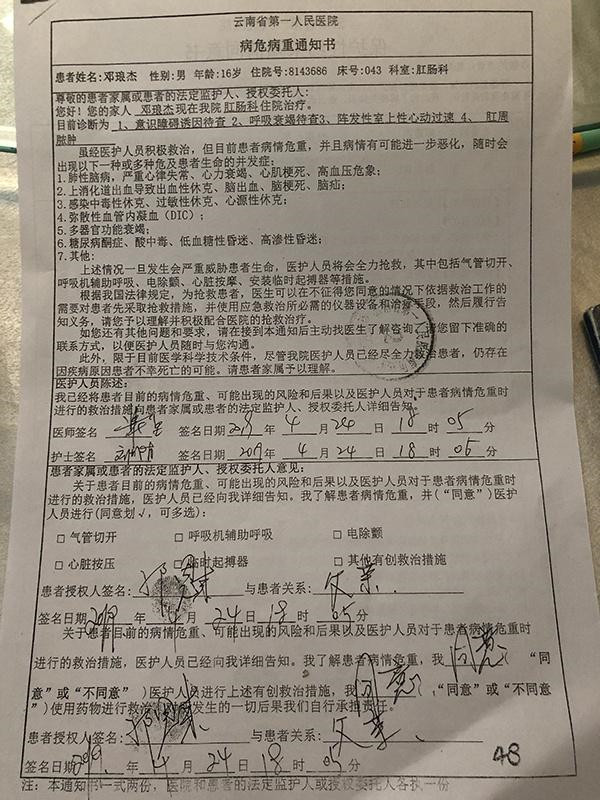 云南省第一人民医院
病危病重通知书
患者姓名:邓琅杰 性别:男 年龄:16岁 住院号:8143686 床号:043 科室:肛肠科
尊敬的患者家属或患者的法定监护人、授权委托人:
您好!您的家人 邓琅杰 现在我院 肛肠科 住院治疗。
目前诊断为 1、意识障碍诱因待查 2、呼吸衰竭待查3、阵发性室上性心动过速 4、 肛周
脓肿
虽经医护人员积极救治,但目前患者病情危重,并且病情有可能进一步恶化,随时会
出现以下一种或多种危及患者生命的并发症:
1.肺性脑病,严重心律失常、心力衰竭、心肌梗死、高血压危象;
2.上消化道出血导致出血性休克、脑出血、脑梗死、脑疝;
3.感染中毒性休克、过敏性休克、心源性休克;
4.弥散性血管内凝血(DIC);
5.多器官功能衰竭;
6.糖尿病酮症、酸中毒、低血糖性昏迷、高渗性昏迷;
7.其他:
上述情况一旦发生会严重威胁患者生命,医护人员将会全力抢救,其中包括气管切开、
呼吸机辅助呼吸、电除颤、心脏按摩、安装临时起搏器等措施。
根据我国法律规定,为抢救患者,医生可以在不征得您同意的情况下依据救治工作的
需要对患者先采取抢救措施,并使用应急救治所必需的仪器设备和治疗手段,然后履行告
知义务,请您予以理解并积极配合医院的抢救治疗。
如您还有其他问题和要求,请在接到本通知后主动找医生了解咨询,请您留下准确的
联系方式,以便医护人员随时与您沟通。
此外,限于目前医学科学技术条件,尽管我院医护人员已经尽全力救治患者,仍存在
因疾病原因患者不幸死亡的可能。请患者家属予以理解。
医护人员陈述:
我已经将患者目前的病情危重、可能出现的风险和后果以及医护人员对于患者病情危重时
进行的救治措施向患者家属或患者的法定监护人、授权委托人详细告知。
医师签名 签名日期2019 年 4 月 24 日 18 时 05 分
护士签名 签名日期 2019 年 4 月 24 日 18 时 05 分
患者家属或患者的法定监护人、授权委托人意见:
关于患者目前的病情危重、可能出现的风险和后果以及医护人员对于患者病情危重时
进行的救治措施,医护人员已经向我详细告知。我了解患者病情危重,并(“同意”)医护
人员进行(同意划√,可多选):
□ 气管切开 □ 呼吸机辅助呼吸 □ 电除颤
□ 心脏按压 □ 临时起搏器 □ 其他有创救治措施
患者授权人签名: 与患者关系: 父亲.
签名日期2019 年 4 月 24 日 18 时 05 分
关于患者目前的病情危重、可能出现的风险和后果以及医护人员对于患者病情危重时
进行的救治措施,医护人员已经向我详细告知。我了解患者病情危重,我 同意 ( “同
意”或“不同意” )医护人员进行上述有创救治措施,我 同意 (“同意”或“不同意
”)使用药物进行救治,对所发生的一切后果我们自行承担责任。
患者授权人签名: 与患者关系: 父亲.
签名日期2019. 年 4 月 24 日 18 时 05 分
48
注:本通知书一式两份,医院和患者的法定监护人或授权委托人各执一份